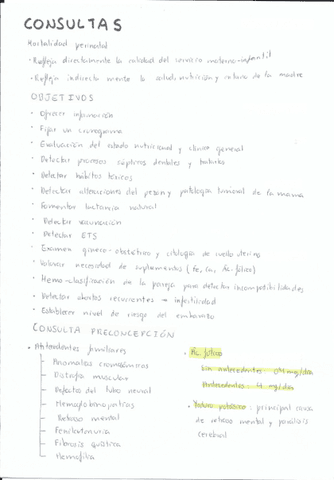 CONSULTAS
Mortalidad perinatal
· Refleja directamente la calidad del servicio materno-infantil
· Refleja indirectamente la salud, nutrición y cultura de la madre
OBJETIVOS
· Ofrecer información
· Fijar un cronograma
· Evaluación del estado nutricional y clínico general
· Detectar procesos sépticos dentales y tratarlos
· Detectar hábitos tóxicos
· Detectar alteraciones del pezón y patología tumoral de la mama
· Fomentar lactancia natural
· Detectar vacunación
· Detectar ETS
· Examen gineco-obstétrico y citología de cuello uterino
· Valorar necesidad de suplementos (Fe, Ca, Ác. fólico)
· Hemo-clasificación de la pareja para detectar incompatibilidades
· Detectar abortos recurrentes → infertilidad
· Establecer nivel de riesgo del embarazo
CONSULTA PRECONCEPCIÓN
· Antecedentes familiares
- Anomalías cromosómicas
- Distrofia muscular
- Defectos del tubo neural
- Hemoglobinopatías
- Retraso mental
- Fenilcetonuria
- Fibrosis quística
- Hemofilia
· Ác. fólico
Sin antecedentes: 0'4 mg/día
Antecedentes: 4 mg/día
· Yoduro potásico: principal causa
de retraso mental y parálisis
cerebral